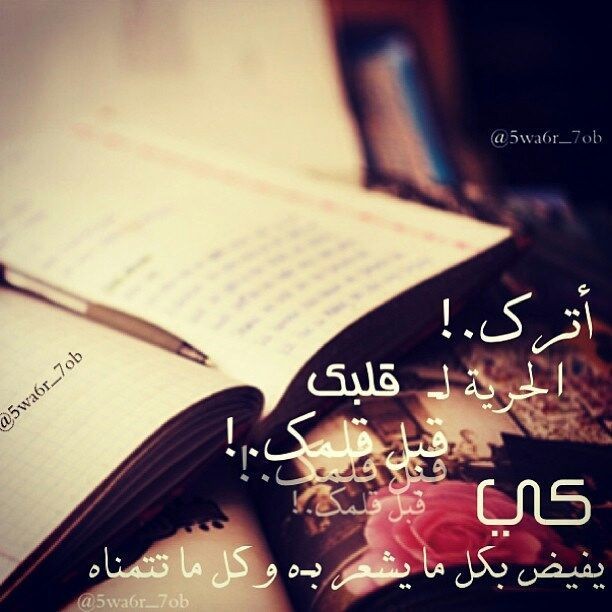 @5wa6r_7ob
أترك.!
الحرية لـ قلبك
قبل قلمك.!
قبل قلمك.!
قبل قلمك.!
كي
يفيض بكل ما يشعر بـه و كل ما تتمناه
@5wa6r_7ob
@5wa6r_7ob